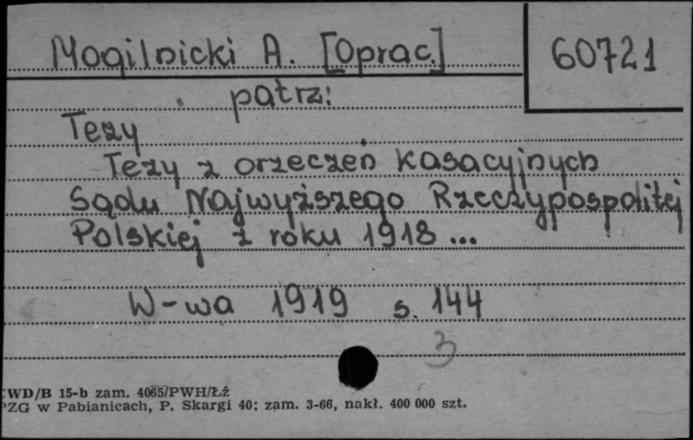 Mogilnicki A. [Oprac.]
60721
patrz:
Tezy
Tezy z orzeczeń kasacyjnych
Sądu Najwyższego Rzeczypospolitej
Polskiej z roku 1918 ...
W-wa 1919 s. 144
3
WD/B 15-b zam. 4065/PWH/Łź
PZG w Pabianicach, P. Skargi 40; zam. 3-66, nakł. 400 000 szt.